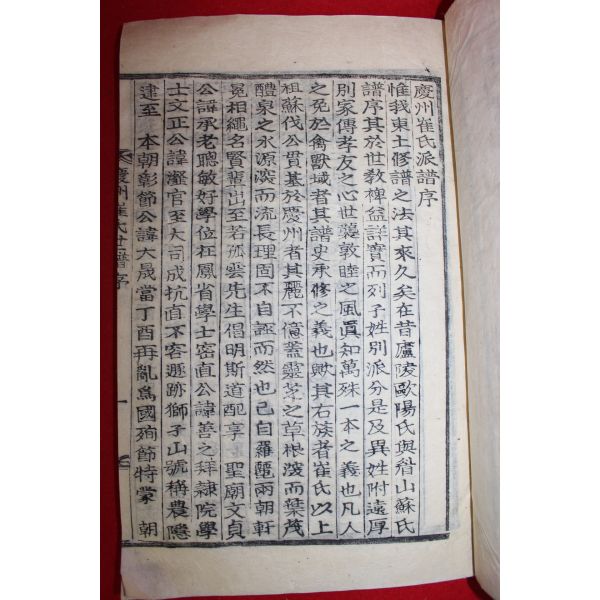 慶州崔氏派譜序
惟我東土修譜之法其來久矣在昔廬陵歐陽氏與眉山蘇氏
譜序其於世敎裨益詳實而列子姓別派分是及異姓附遠厚
別家傳孝友之心世蕩敦睦之風眞知萬殊一本之義也凡人
之免於禽獸域者其譜史承修之義也歟其右族者崔氏以上
祖蘇伐公貫基於慶州者其麗不億蓋靈芝之草根深而葉茂
醴泉之水源深而流長理固不自誣而然也已自羅麗兩朝軒
冕相繩名賢輩出至若孤雲先生倡明斯道配享 聖廟文貞
公諱承老聰敏好學位在鳳省學士密直公諱善之拜隷院學
士文正公諱瀣官至大司成抗直不容遯跡獅子山號稱農隱
逮至 本朝彰節公諱大晟當丁酉再亂爲國殉節特蒙 朝
慶州崔氏世譜序 一